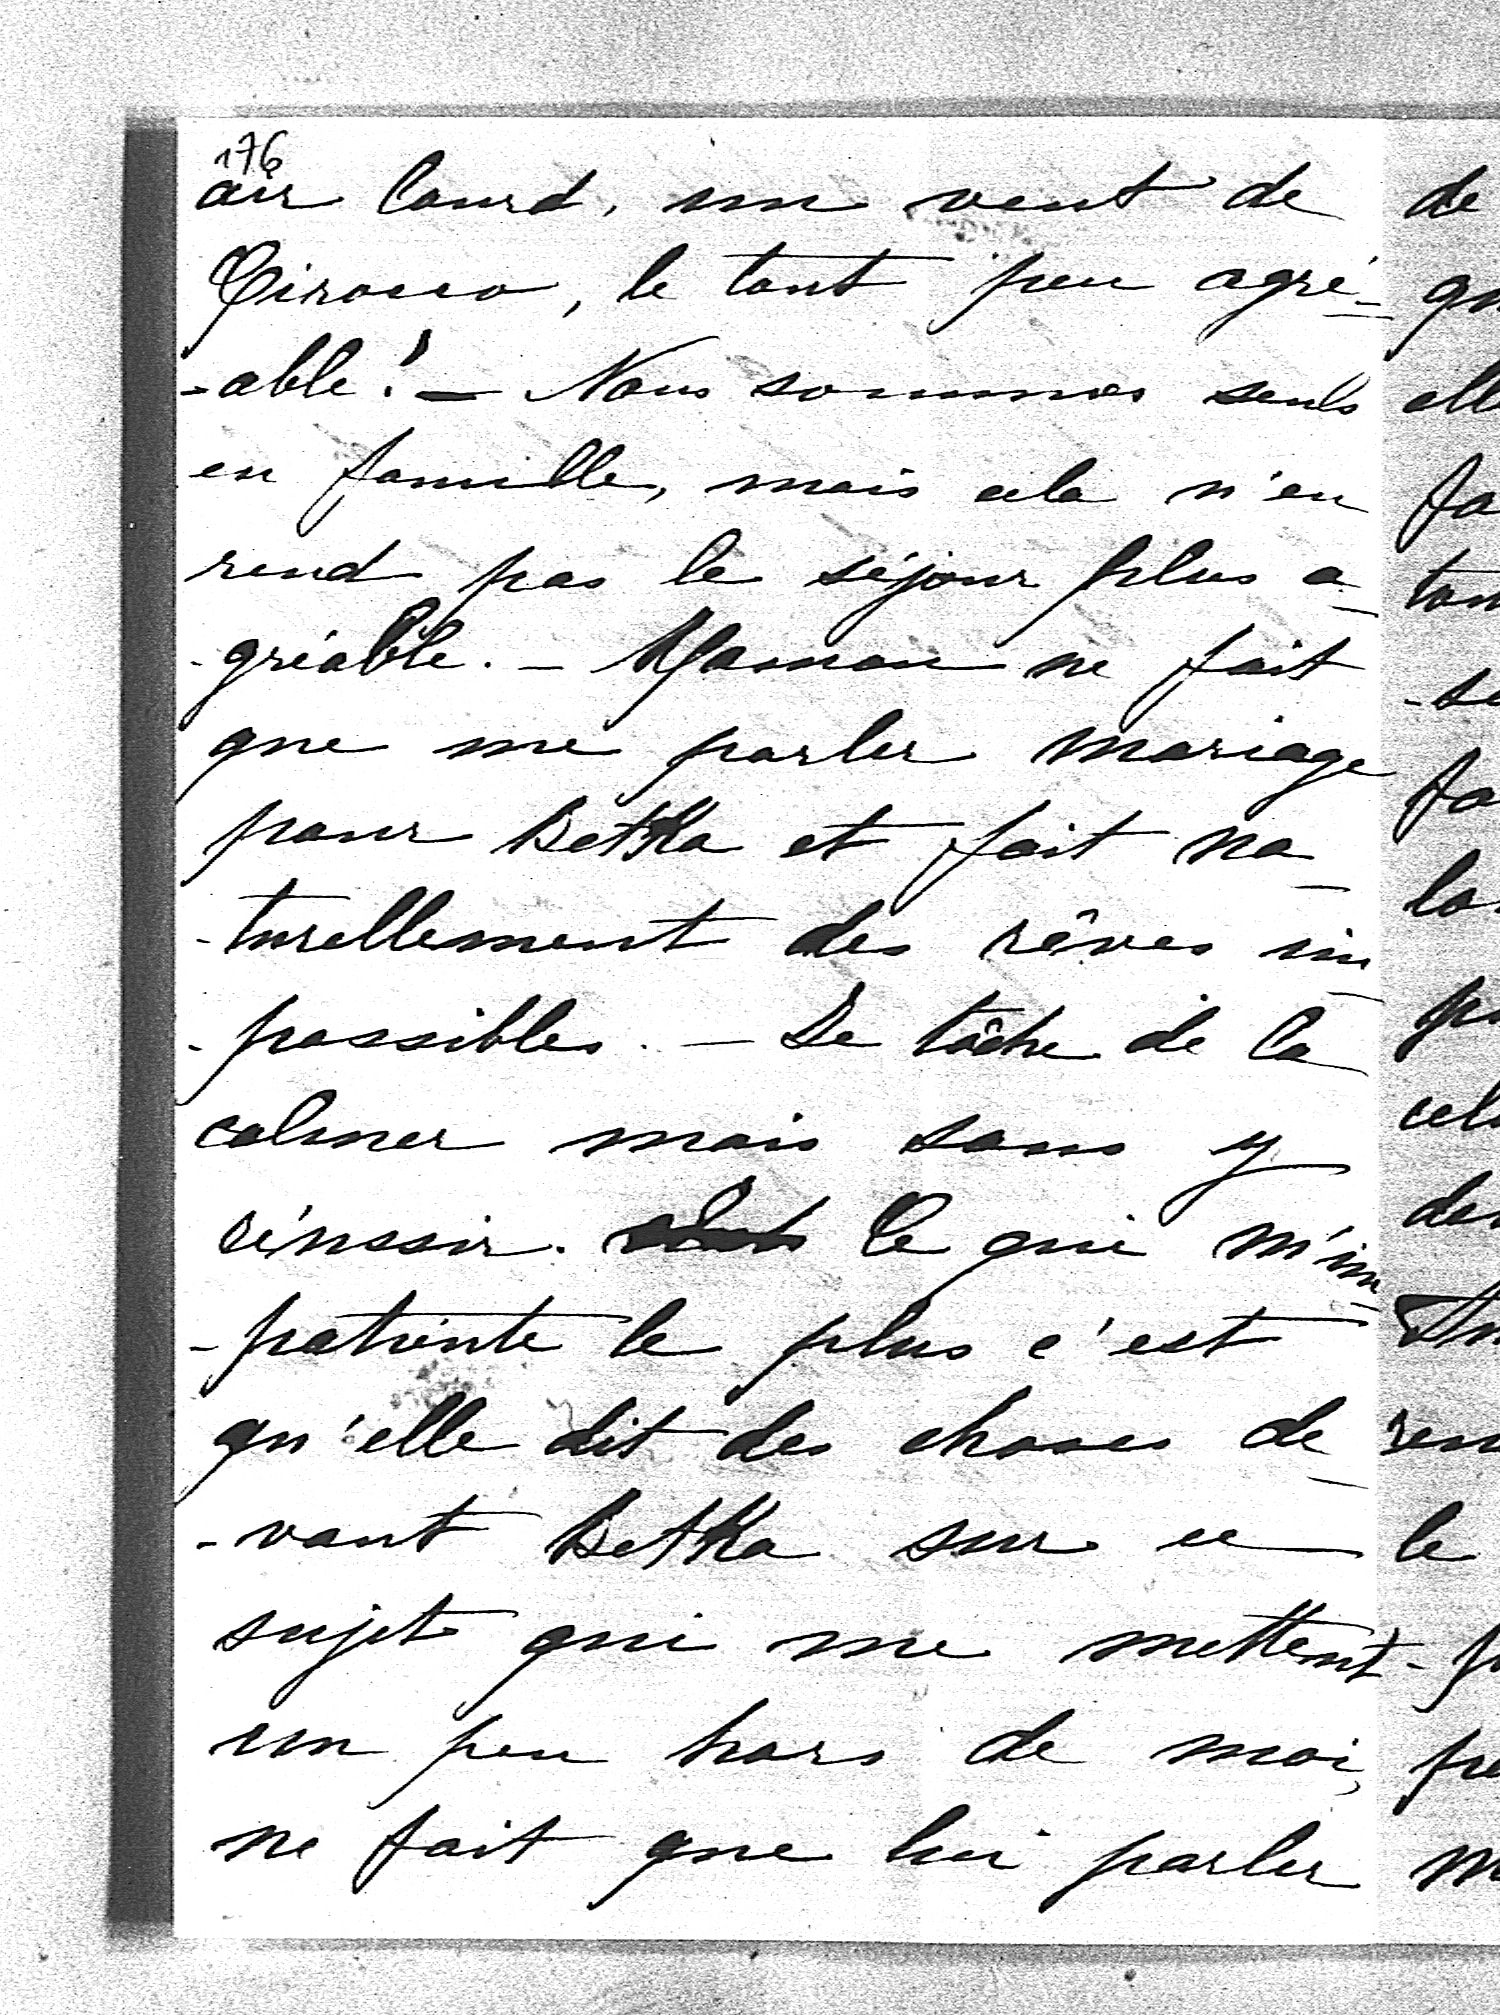 176
air lourd, un vent de
Cirocco, le tout peu agré-
-able! - Nous sommes seuls
en famille, mais cela n'en
rend pas le séjour plus a-
-gréable. - Maman ne fait
que me parler mariage
pour Betka et fait na-
-turellement des rêves im-
-possibles. - Je tâche de la
calmer mais sans y
réussir. Ce qui m'im-
-patiente le plus c'est
qu'elle dit des choses de-
-vant Betka sur ce
sujet qui me mettent
un peu hors de moi,
ne fait que lui parler
de
le